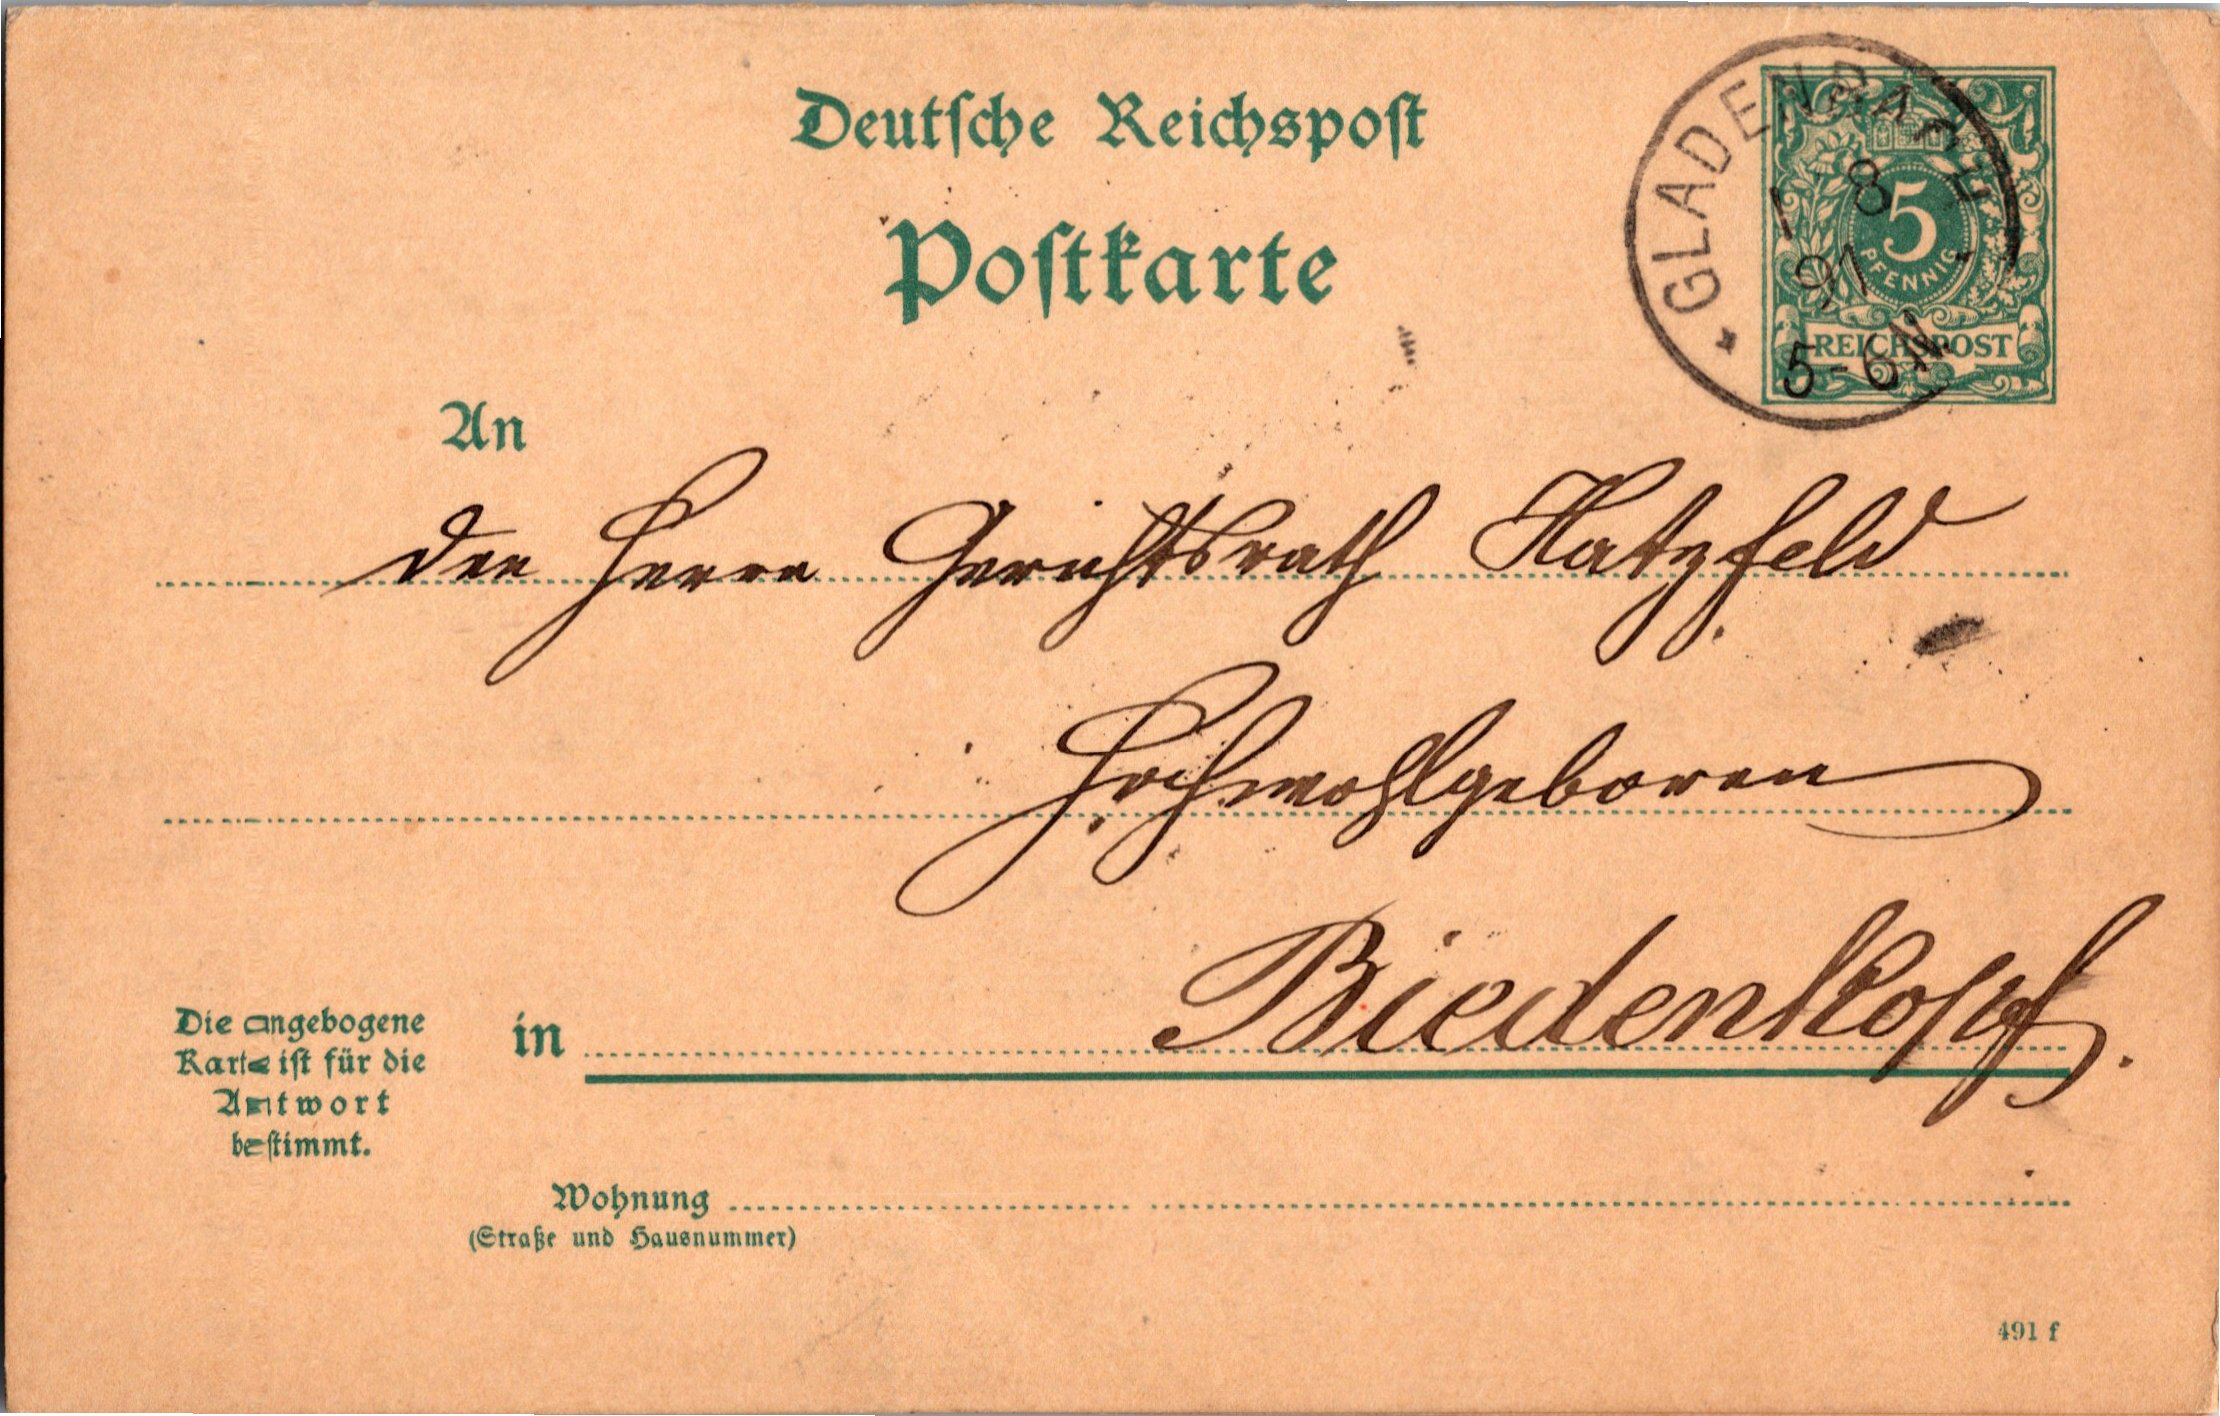 Deutsche Reichspost
Postkarte
* GLADENBACH
1 8
91
5-6N.
5
PFENNIG
REICHSPOST
An
den Herrn Gerichtsrath Hatzfeld
Hochwohlgeboren
in Biedenkopf.
Die angebogene
Karte ist für die
Antwort
bestimmt.
Wohnung
(Straße und Hausnummer)
491 f